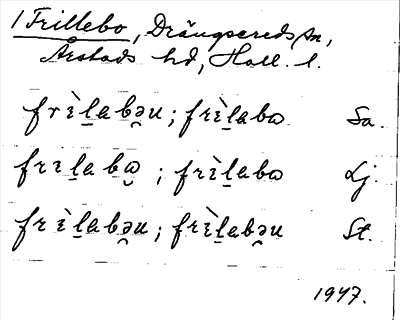 1 Frillebo, Drängsereds sn,
Årstads hd, Hall. l.
frìl̠abə̯u; frìl̠abɷ Sa.
frɩl̠abɷ̯; frìl̠abɷ Lj.
frìl̠abə̯u; frìl̠abə̯u St.
1947.